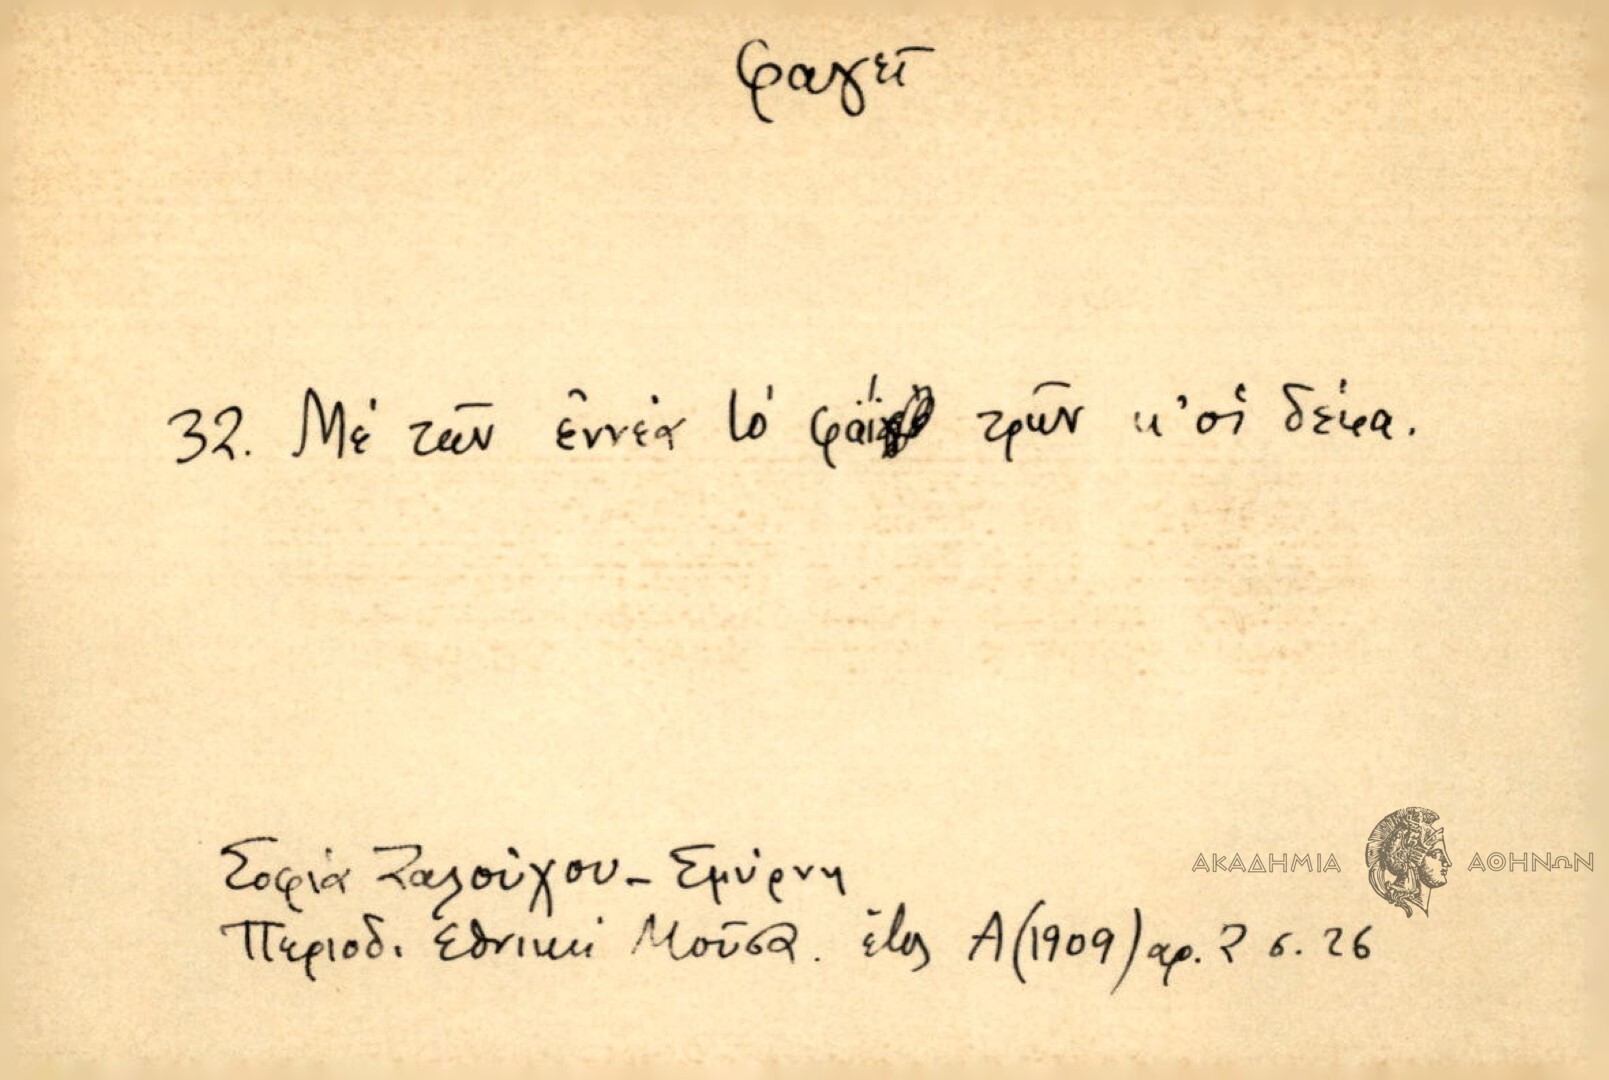 φαγεῖ
32. Μὲ τῶν ἐννέα τό φάϊ τρῶν κ' οἱ δέκα.
Σοφία Σαλούχου - Σμύρνη
Περιοδ. Εθνική Μοῦσα. ἔτος Α (1909) αρ. 2 σ. 26
ΑΚΑΔΗΜΙΑ ΑΘΗΝΩΝ